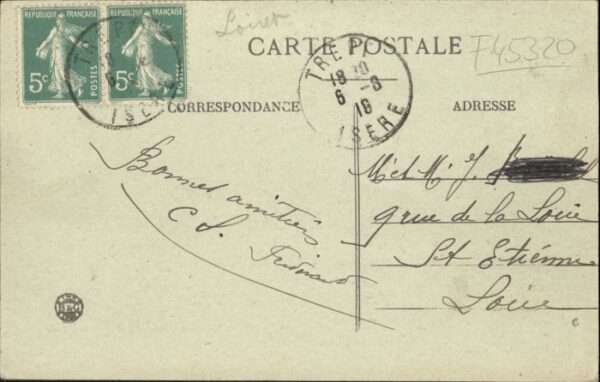 RÉPUBLIQUE FRANÇAISE
5c
POSTES
RÉPUBLIQUE FRANÇAISE
5c
TREPT
ISÈRE
Loiret
CARTE POSTALE
F45320
TREPT
18 30
6 -8
18
ISÈRE
CORRESPONDANCE
ADRESSE
Bonnes amitiés
C S.
M et M. J.
9 rue de la Loire
St Etienne
Loire